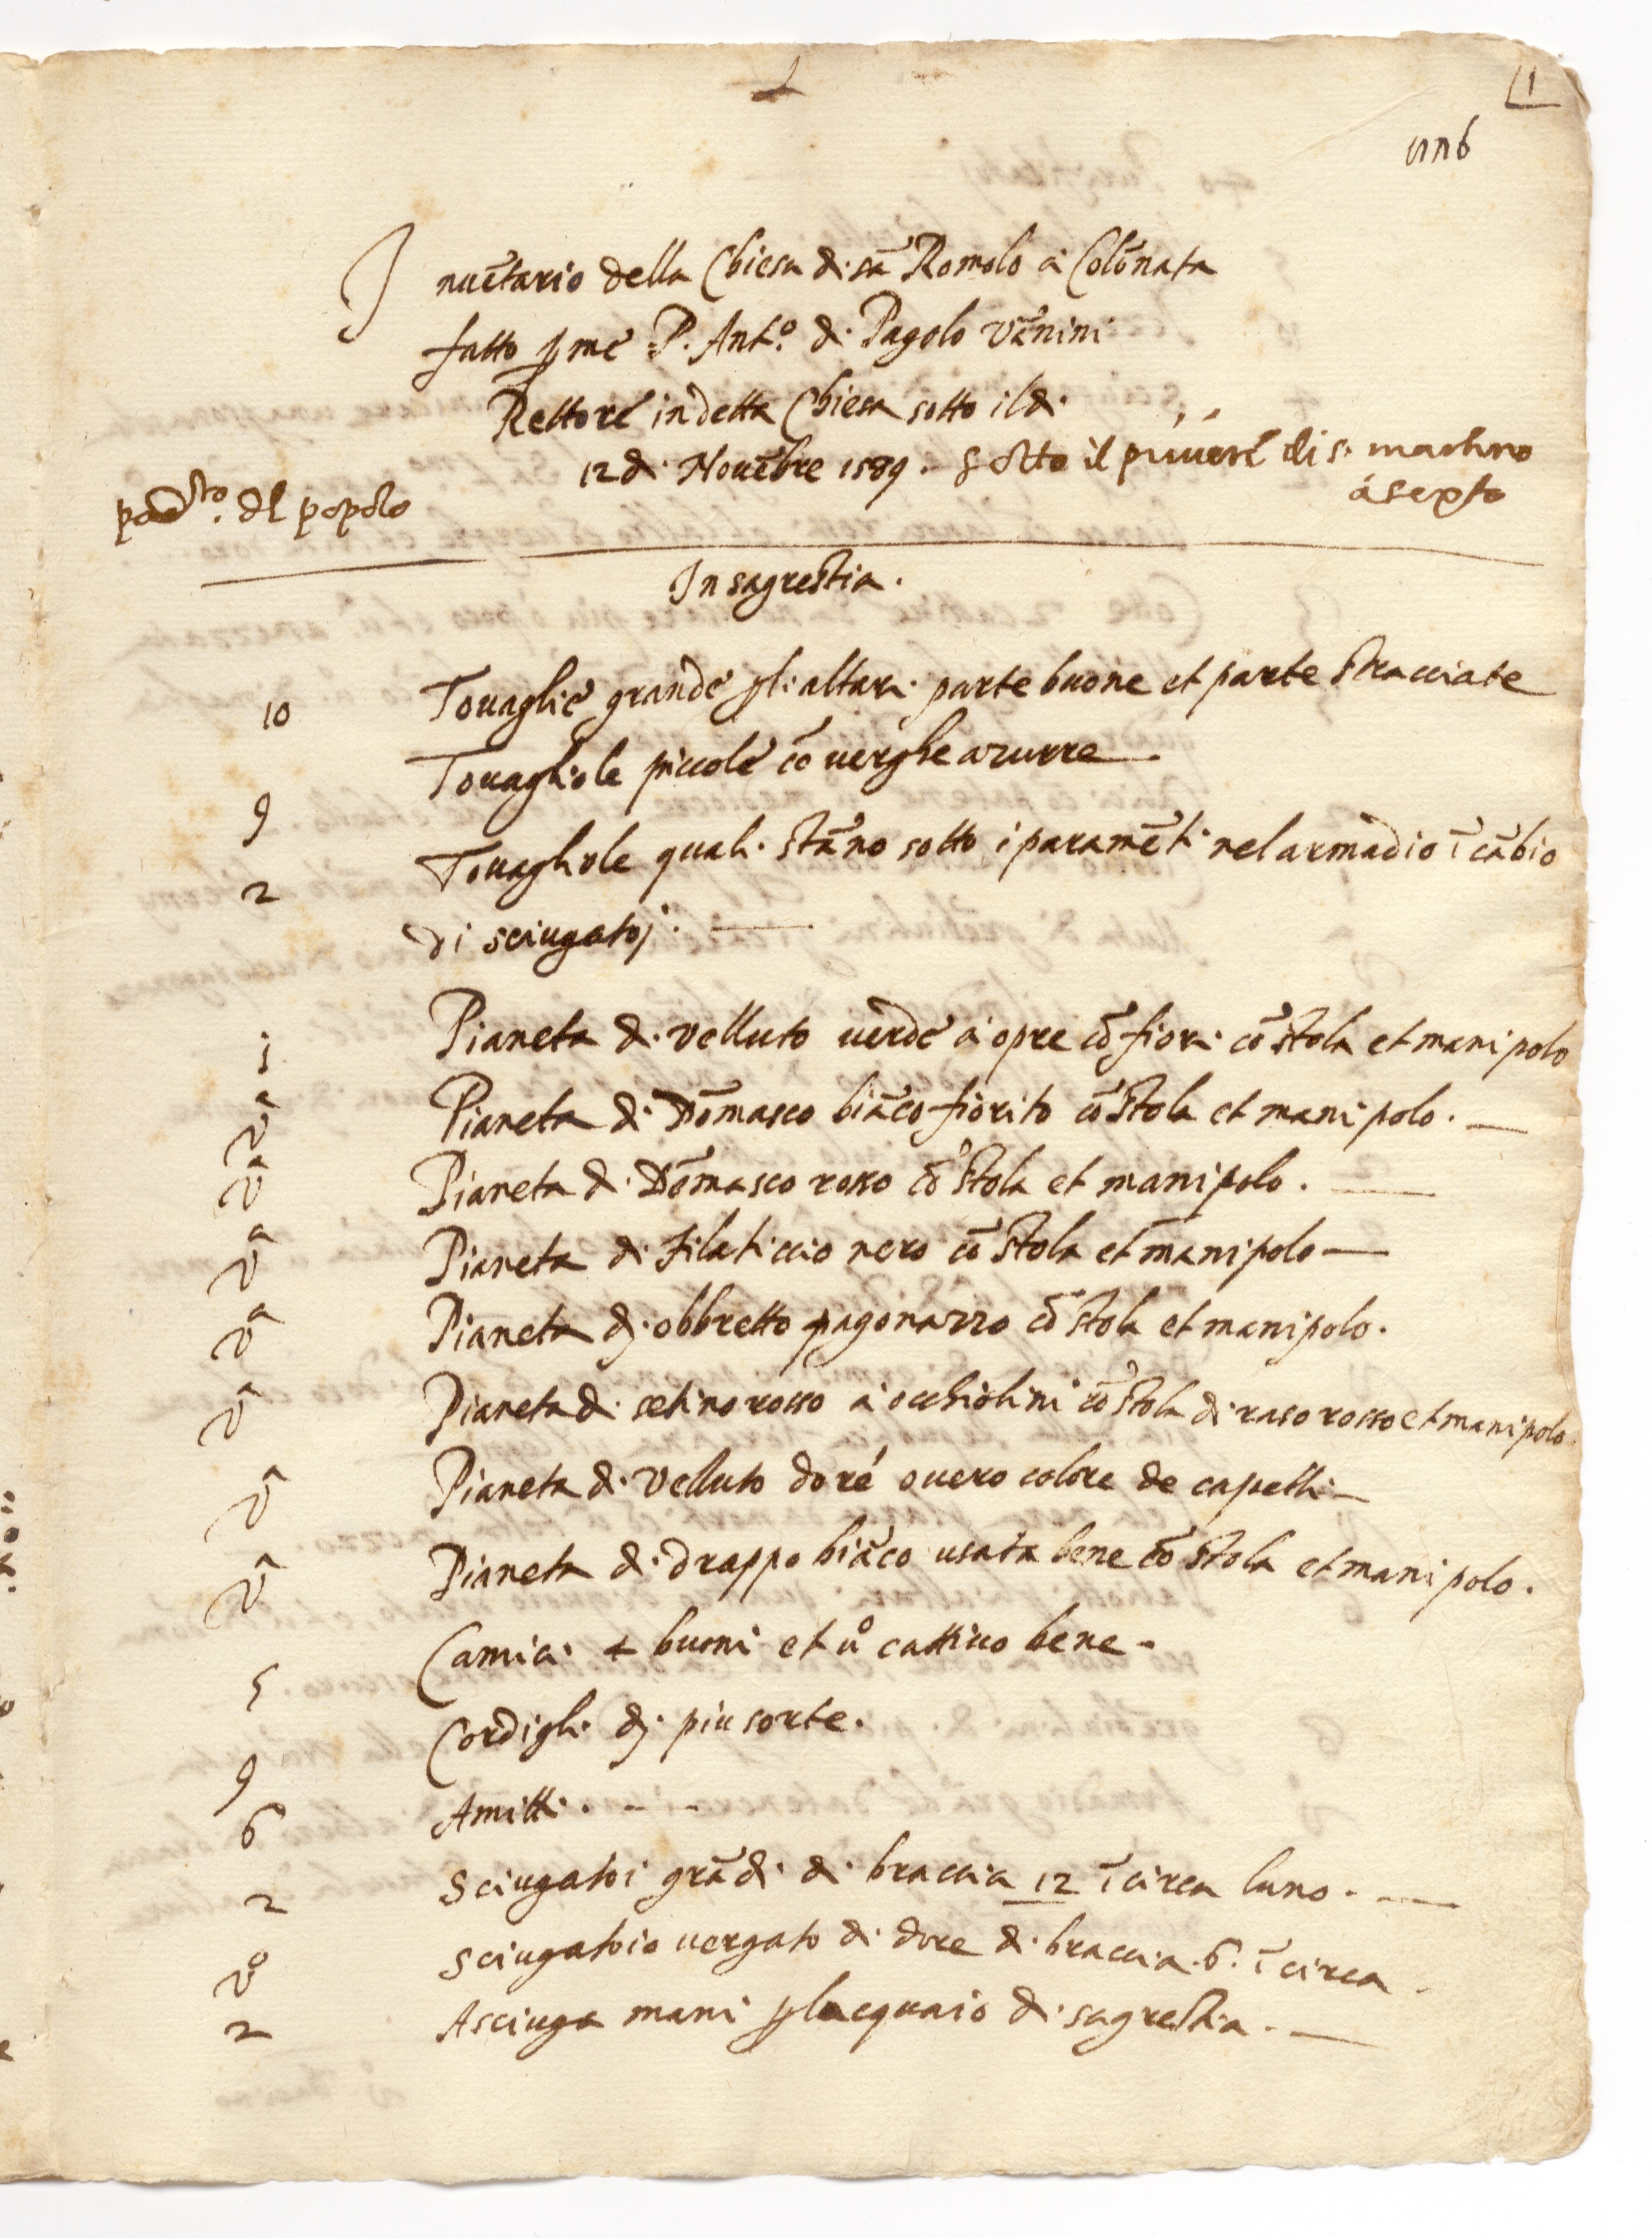 1
Inuētario della Chiesa di sā Romolo à Colōnata
fatto p me P. Ant.º di Pagolo Vānini
Rettore in detta Chiesa sotto il di
12 di Nouēbre 1589. sotto il piviere di s. martino
à sexto
pad.to del popolo
In sagrestia.
10 Touaglie grande p li altari parte buone et parte stracciate
9 Touagliole piccole cō uerghe azurre
2 Touagliole quali stāno sotto i paramēti nel armadio ī cābio
di sciugatoj.
1 Pianeta di velluto uerde à opre cō fiori cō stola et manipolo
va Pianeta di Dōmasco biāco fiorito cō stola et manipolo.
va Pianeta di Dōmasco rosso cō stola et manipolo.
va Pianeta di filaticcio nero cō stola et manipolo
va Pianeta dj obbretto pagonazzo cō stola et manipolo.
va Pianeta di setino rosso à occhiolini cō stola di raso rosso et manipolo.
va Pianeta di velluto doré ouero colore de capelli
va Pianeta di drappo biāco usata bene cō stola et manipolo.
5 Camici 4 buoni et uº cattiuo bene
9 Cordigli dj piu sorte.
6 Amitti.
2 Sciugatoi grādi di braccia 12 ī circa luno.
vº Sciugatoio uergato di dore di braccia .6. ī circa
2 Asciuga mani p lacquaio di sagrestia.